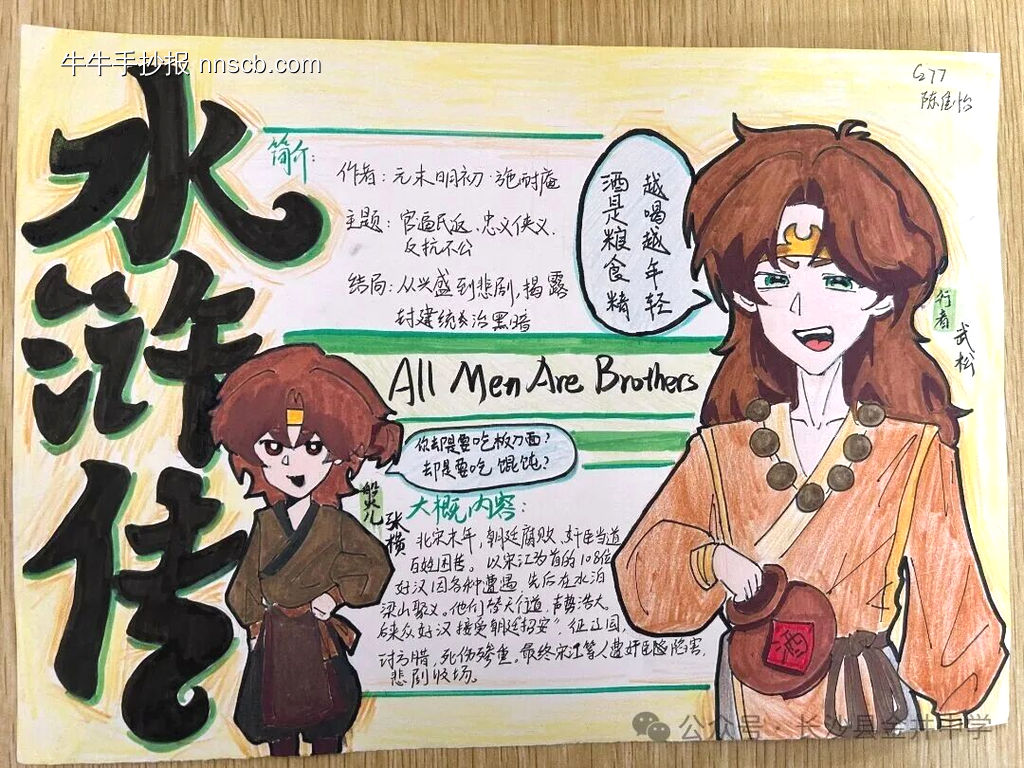 牛牛手抄报 nnscb.com
G77
陈佳怡
水浒传
简介:
作者:元末明初·施耐庵
主题:官逼民反、忠义侠义、
反抗不公
结局:从兴盛到悲剧,揭露
封建统治黑暗
越喝越年轻
酒是粮食精
行者
武松
All Men Are Brothers
你却是要吃板刀面?
却是要吃馄饨?
船火儿
张横
大概内容:
北宋末年,朝廷腐败、奸臣当道
百姓困苦。以宋江为首的108位
好汉因各种遭遇,先后在水泊
梁山聚义。他们替天行道,声势浩大。
后来众好汉接受朝廷招安”,征辽国,
讨方腊,死伤惨重。最终宋江等人遭奸臣陷害,
悲剧收场。
公众号·长沙县金井中学